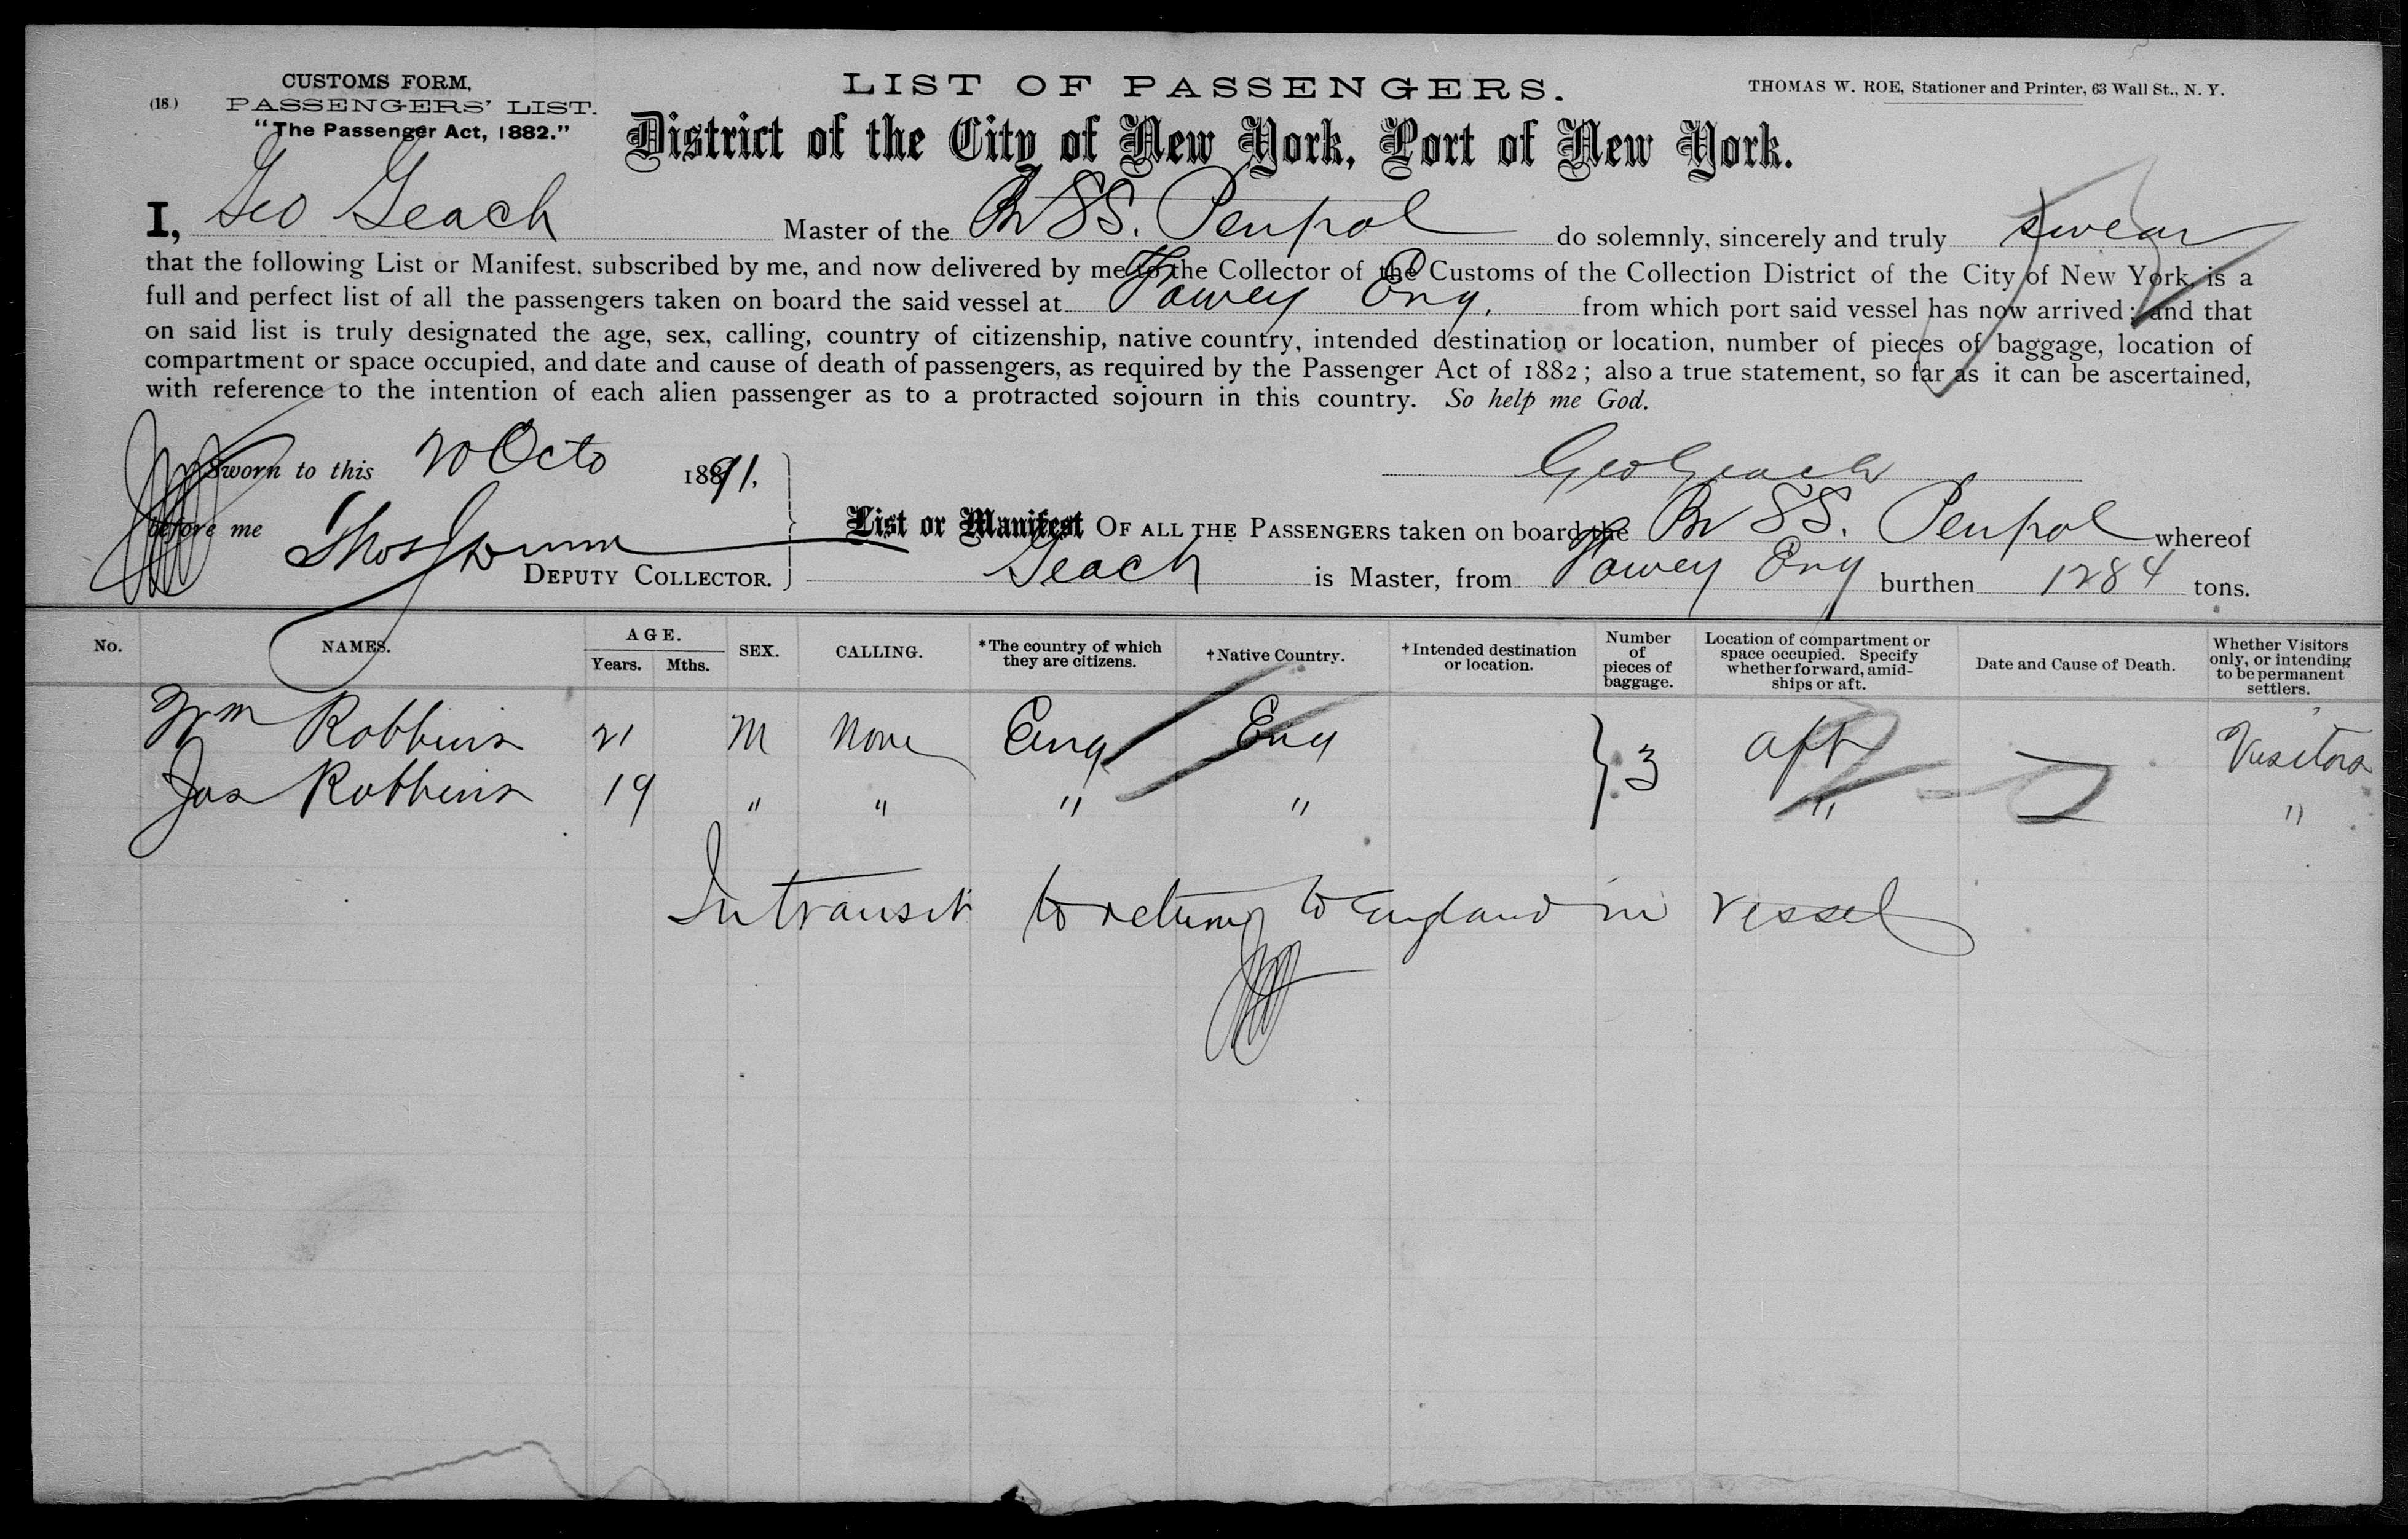 (18.)
CUSTOMS FORM,
PASSENGERS' LIST.
"The Passenger Act, 1882."
LIST OF PASSENGERS.
THOMAS W. ROE, Stationer and Printer, 63 Wall St., N. Y.
District of the City of New York, Port of New York.
I, Geo Geach Master of the Br SS. Penpol do solemnly, sincerely and truly swear
that the following List or Manifest, subscribed by me, and now delivered by me to the Collector of the Customs of the Collection District of the City of New York, is a
full and perfect list of all the passengers taken on board the said vessel at Fowey Eng. from which port said vessel has now arrived; and that
on said list is truly designated the age, sex, calling, country of citizenship, native country, intended destination or location, number of pieces of baggage, location of
compartment or space occupied, and date and cause of death of passengers, as required by the Passenger Act of 1882; also a true statement, so far as it can be ascertained,
with reference to the intention of each alien passenger as to a protracted sojourn in this country. So help me God.
Sworn to this 20 Octo 1891,
Geo Geach
before me Thos
DEPUTY COLLECTOR.
List or Manifest OF ALL THE PASSENGERS taken on board the Br SS. Penpol whereof
Geach is Master, from Fowey Eng burthen 1284 tons.
No. NAMES. AGE. Years. Mths. SEX. CALLING. *The country of which they are citizens. †Native Country. †Intended destination or location. Number of pieces of baggage. Location of compartment or space occupied. Specify whether forward, amidships or aft. Date and Cause of Death. Whether Visitors only, or intending to be permanent settlers.
Wm Robbins 21 M None Eng Eng } 3 aft — Visitors
Jas Robbins 19 " " " " " — "
In transit to return to England in vessel